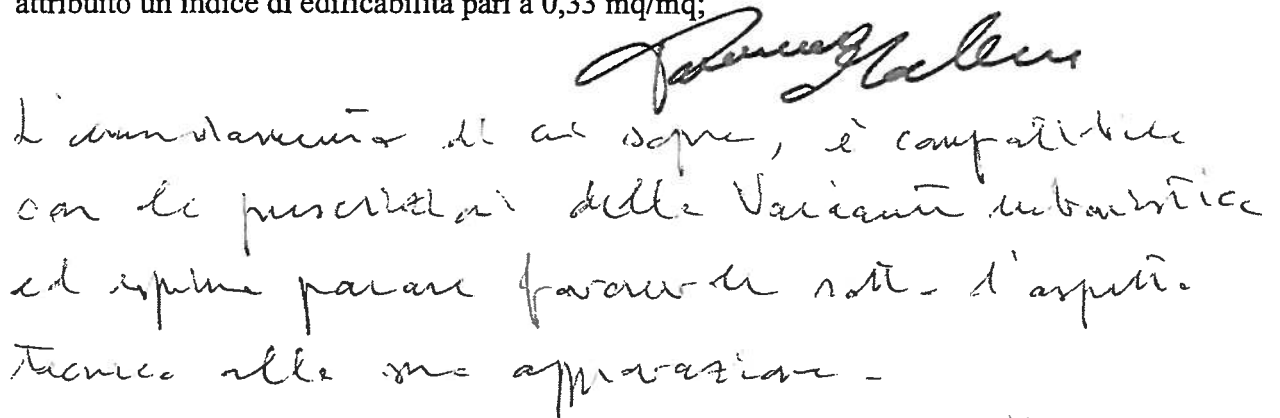 attribuito un indice di edificabilità pari a 0,33 mq/mq;
L'emendamento di cui sopra, è compatibile
con le prescrizioni della Variante urbanistica
ed esprime parere favorevole sotto l'aspetto
tecnico alla sua approvazione -